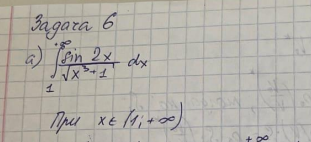 Задача 6
а) ∫₁^{+∞} sin 2x / √(x³+1) dx
При x ∈ (1; +∞)
+∞